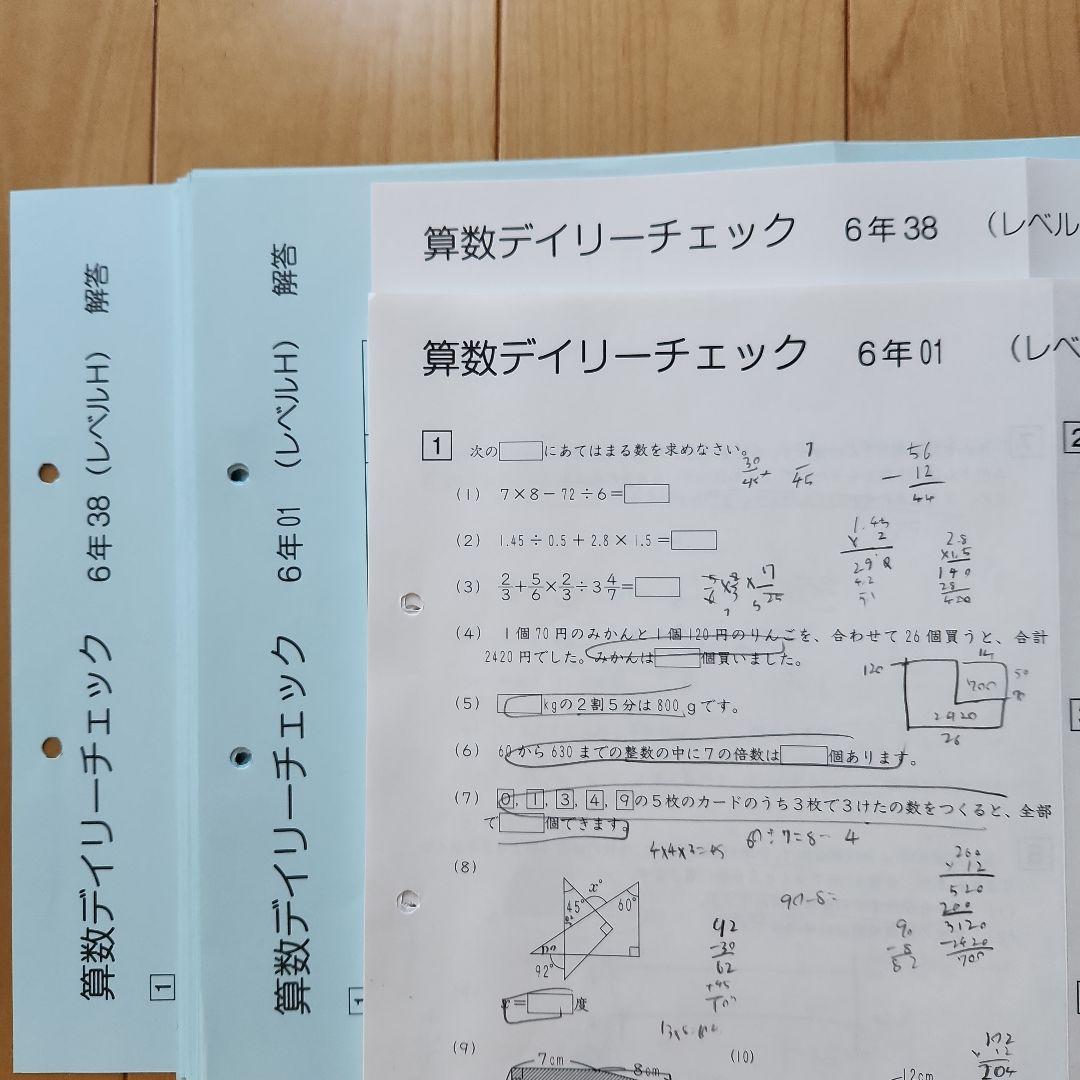 算数デイリーチェック 6年38 (レベルH) 解答
1
算数デイリーチェック 6年01 (レベルH) 解答
1
算数デイリーチェック 6年38 (レベル
算数デイリーチェック 6年01 (レベ
1 次の□にあてはまる数を求めなさい。
(1) 7×8−72÷6=□
(2) 1.45÷0.5+2.8×1.5=□
(3) 2/3+5/6×2/3÷3 4/7=□
(4) 1個70円のみかんと1個120円のりんごを、合わせて26個買うと、合計
2420円でした。みかんは□個買いました。
(5) □kgの2割5分は800gです。
(6) 60から630までの整数の中に7の倍数は□個あります。
(7) 0, 1, 3, 4, 9の5枚のカードのうち3枚で3けたの数をつくると、全部
で□個できます。
(8)
x°
45°
60°
92°
x=□度
(9)
7cm
8cm
(10)
12cm
7
45
56
− 12
44
2.8
×1.5
140
28
420
120
14
50
700
2420
26
90
−8
82
260
×12
520
3120
−2420
700